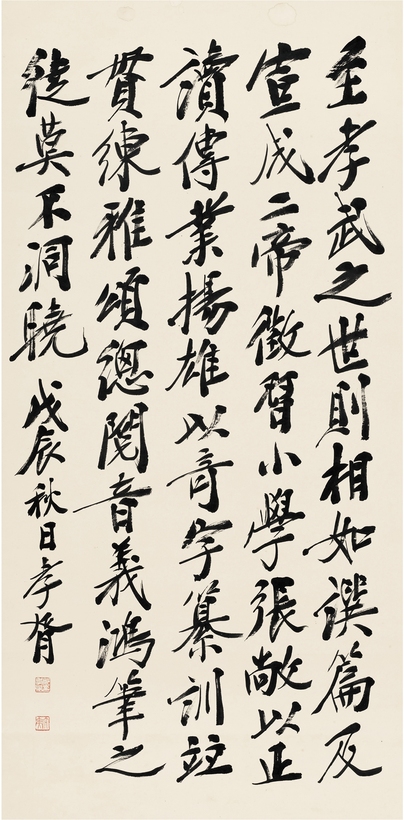 至孝武之世則相如譔篇及
宣成二帝徵小學張敞以正
讀傳業揚雄以奇字纂訓竝
貫練雅頌總閱音義鴻筆之
徒莫不洞曉 戊辰秋日孝胥